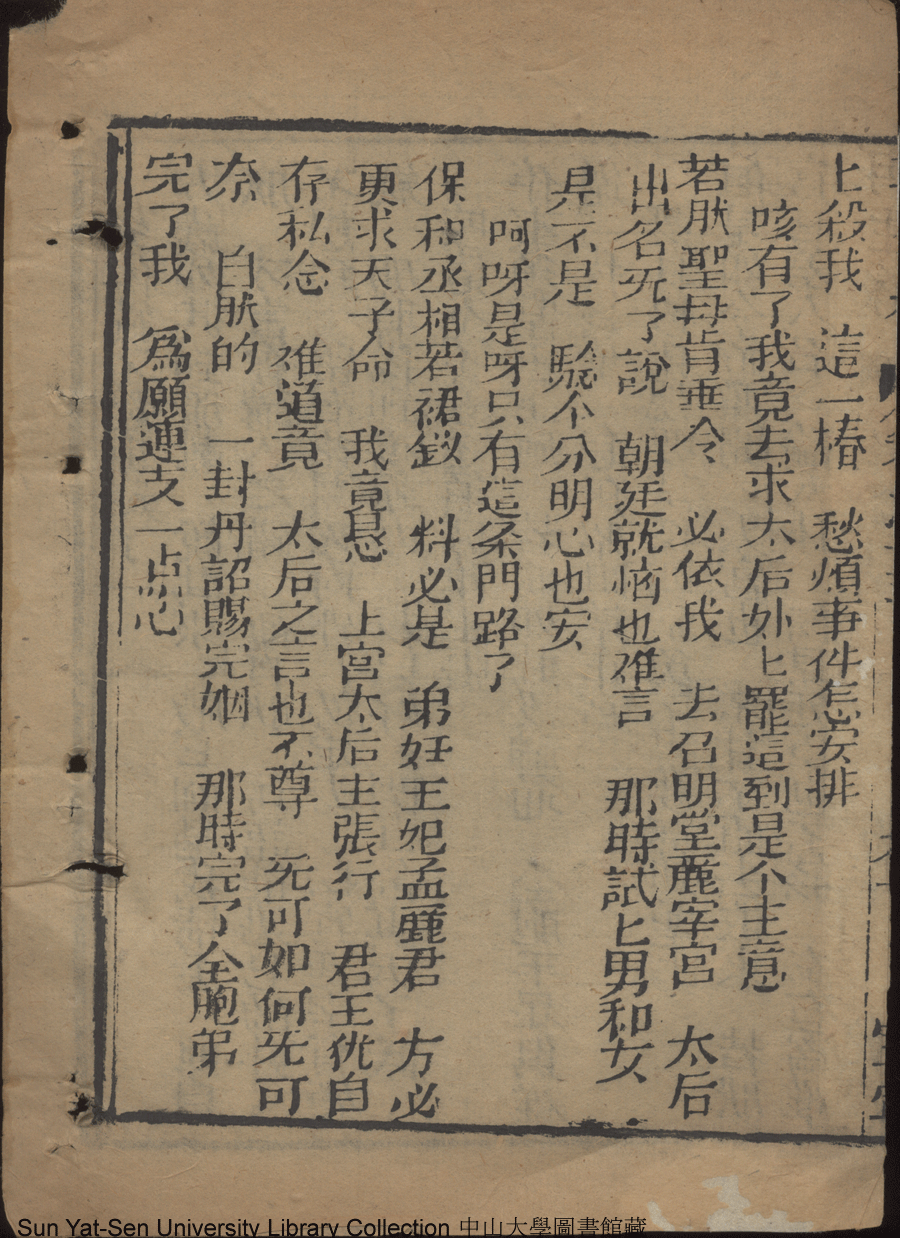 上殺我　這一樁　愁煩事件怎安排
咳有了我竟去求太后外上罷這到是个主意
若肰聖母肯垂令　必依我　去召明堂麗宰宮　太后
出名旡了說　朝廷就惱也难言　那時試上男和女
是不是　驗个分明心也安
呵呀是呀只有這条門路了
保和丞相若裙釵　料必是　弟妊王妃孟麗君　方必
更求天子命　我竟恳　上宮太后主張行　君王优自
存私念　难道竟　太后之言也不尊　旡可如何旡可
奈　自肰的　一封丹詔賜完姻　那時完了仝胞弟
完了我　為願蓮支一点心
Sun Yat-Sen University Library Collection 中山大學圖書館藏